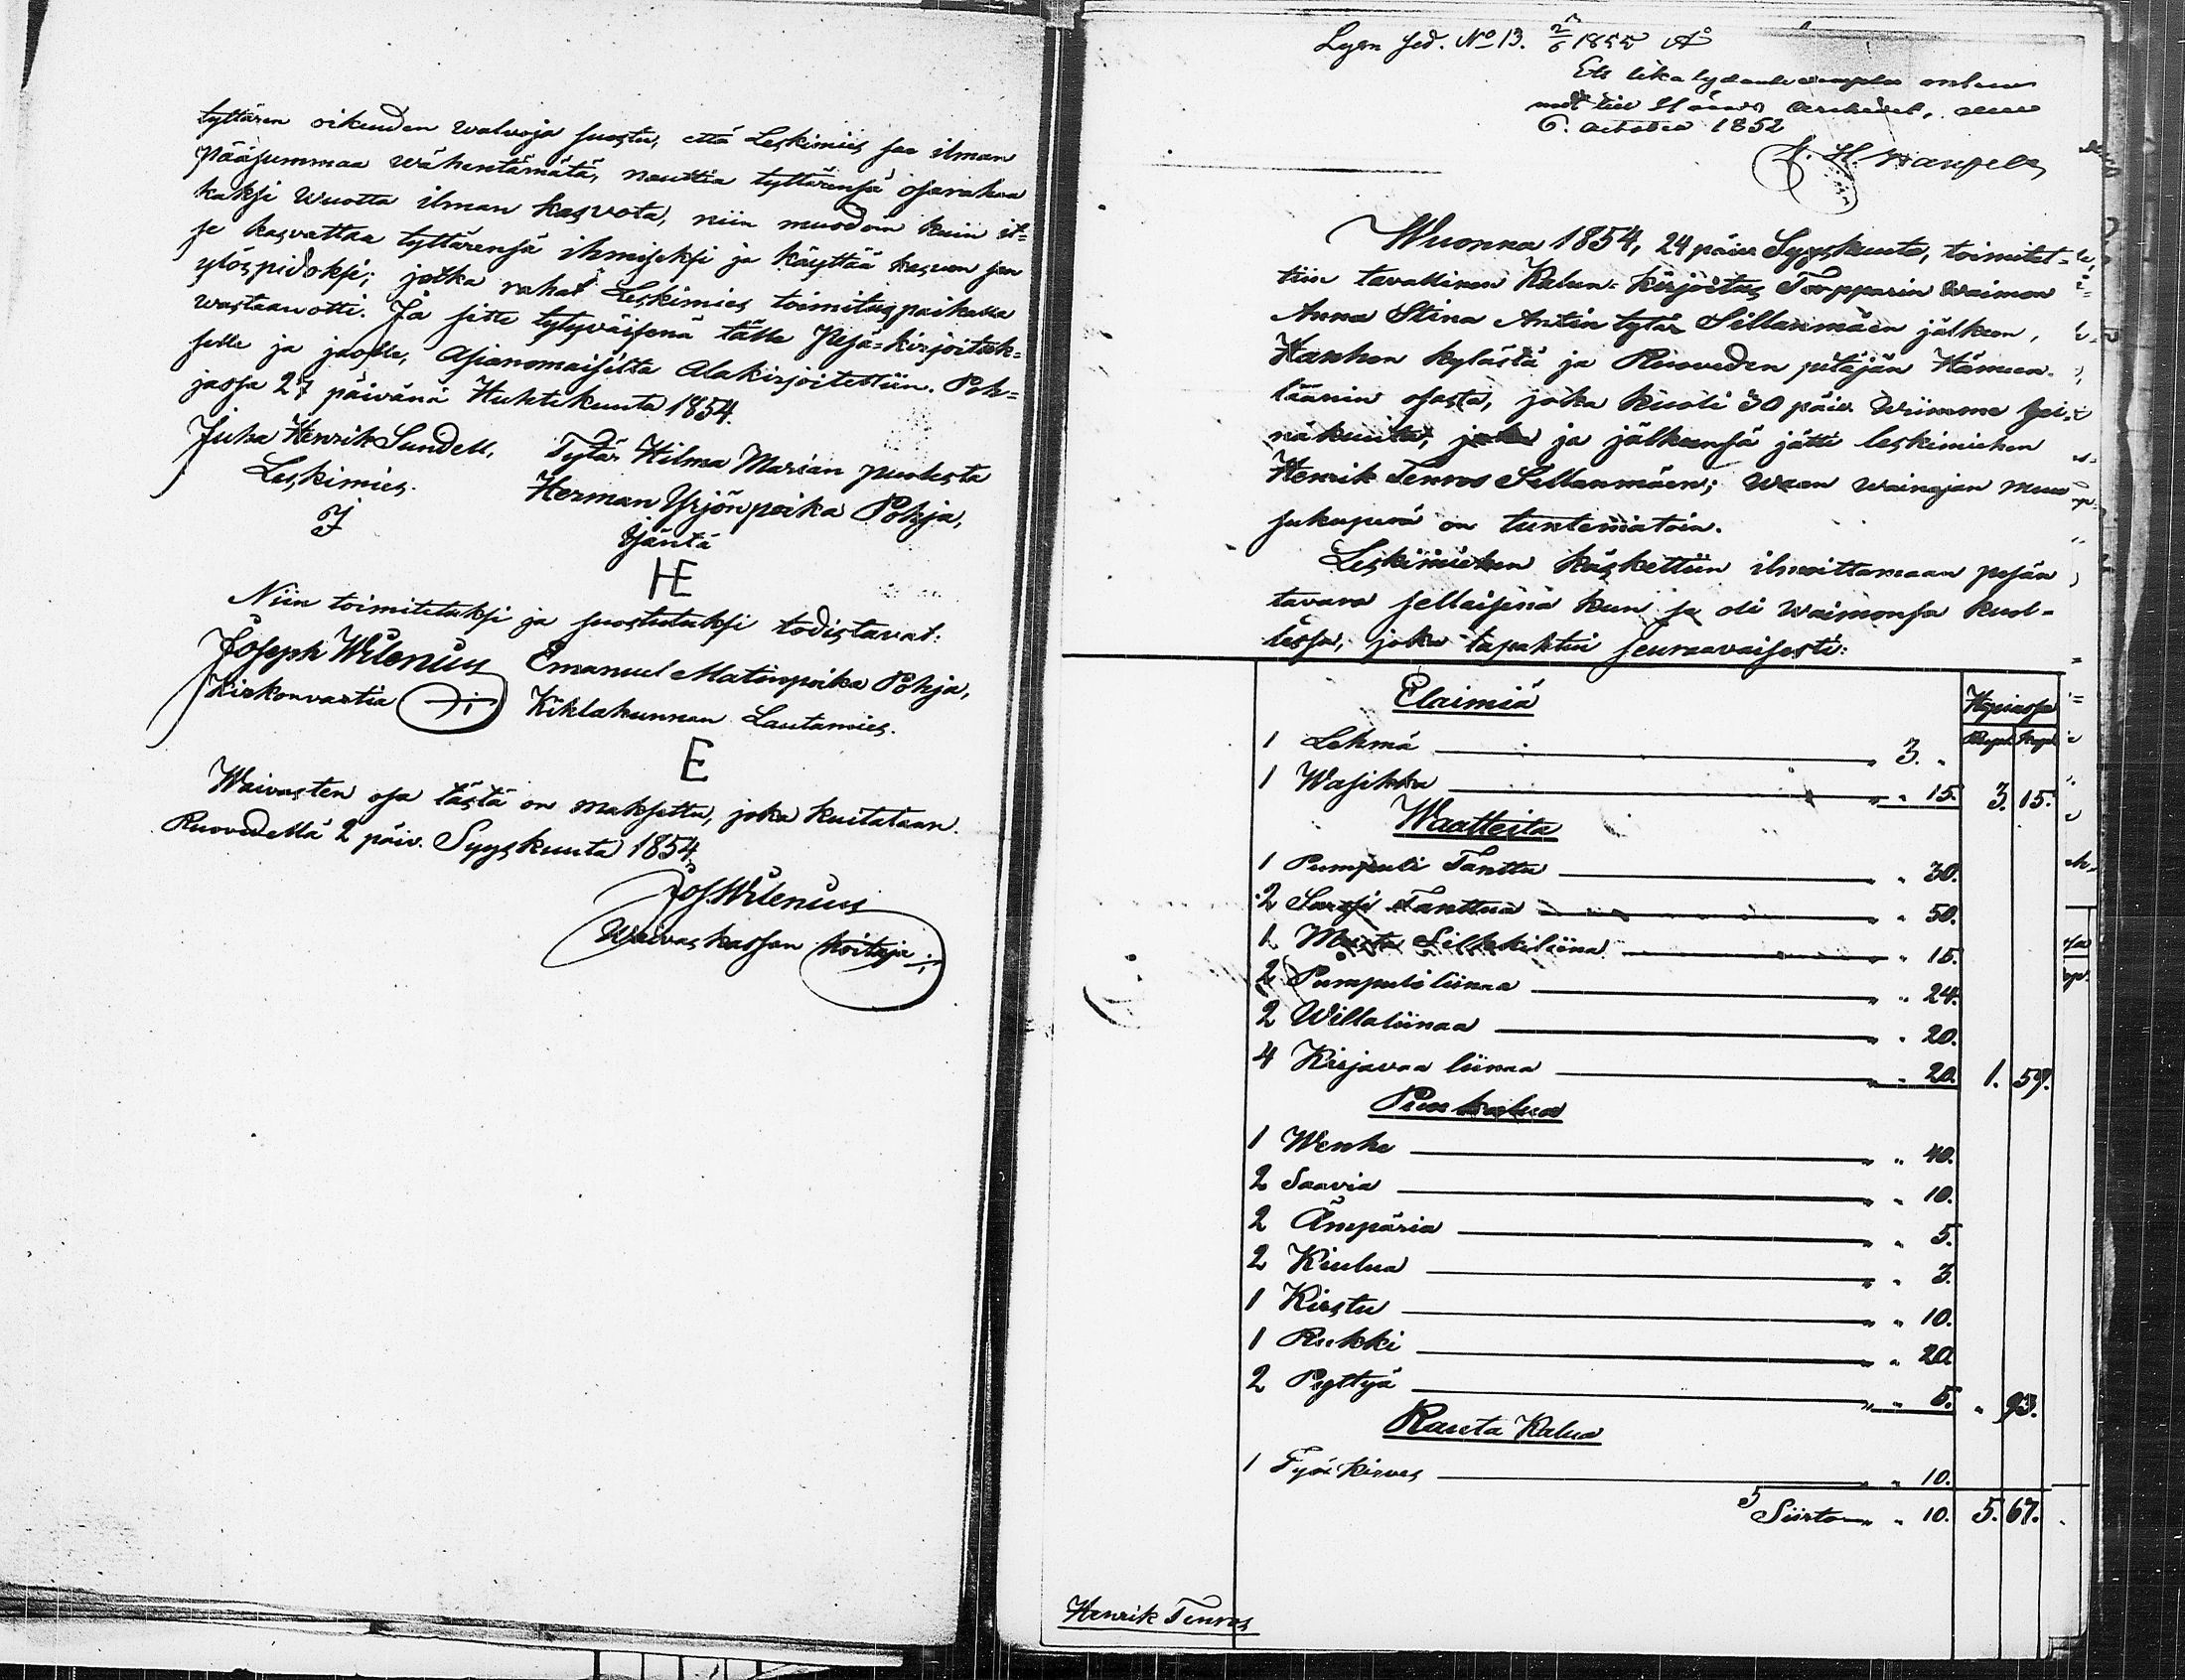 tyttären oikeuden walvoja suostu, että Leskimies saa ilman
Pääsummaa wähentämätä, nauttia tyttärensä osarahaa
kaksi wuotta ilman kasvota, niin muodoin kuin it=
se kasvattaa tyttärensä ihmiseksi ja käyttää kasvon sen
ylöspidoksi; jotka rahat Leskimies toimituspaikassa
wastaanotti. Ja sitte tytyväisenä tälle Pesä=kirjoituk=
selle ja jaolle, Asianomaisilta Alakirjoitettiin. Poh=
jassa 27 päivänä Huhtikuuta 1854.
Juha Henrik Sundell, Tytär Hilma Marian puolesta
Leskimies. Herman Yrjönpoika Pohja,
Isäntä
HE
Niin toimitetuksi ja suostutuksi todistavat:
Joseph Wilenius Emanuel Matinpoika Pohja,
Kirkonvartia Kihlakunnan Lautamies.
E
Waivasten osa tästä on maksettu, joka kuitataan.
Ruovedellä 2 päiv. Syyskuuta 1854.
Jos. Wilenius
Waivaskassan hoitaja
No 13. 1855
Ett lika lydande
6. October 1852
Wuonna 1854, 24 päiv. Syyskuuta, toimitet=
tiin tavallinen Kalun=kirjoitus Torpparin Waimon
Anna Stina Antin tytär Sillanmäen jälkeen,
kylästä ja Ruoveden pitäjän Hämeen
läänin osasta, joka kuoli 30 päiv. wiimme hei=
näkuuta, ja jälkeensä jätti leskimiehen
Henrik Tenros Sillanmäen; waan wainajan muu
sukuperä on tuntematoin.
Leskimiehen käskettiin ilmoittamaan pesän
tavara sellaisena kun se oli waimonsa kuol=
lessa, joka tapahtui seuraavaisesti:
Elaimiä Hopiassa
Rupl. Kop.
1 Lehmä 3. „
1 Wasikka „ 15. 3. 15.
Waatteita
1 Pumpuli Tanttu „ 30.
2 Sarsi Tanttua „ 50.
1 Musta Silkkiliina „ 15.
2 Pumpuli liinaa „ 24.
2 Willaliinaa „ 20.
4 Kirjavaa liinaa „ 20. 1. 59.
Puu kalua
1 Wenhe „ 40.
2 Saavia „ 10.
2 Ämpäria „ 5.
2 Kiulua „ 3.
1 Kirstu „ 10.
1 Rukki „ 20.
2 Pyttyä „ 5. „ 93.
Rauta Kalua
1 Työ kirves „ 10.
Siirto „ 10. 5. 67.
Henrik Tenros